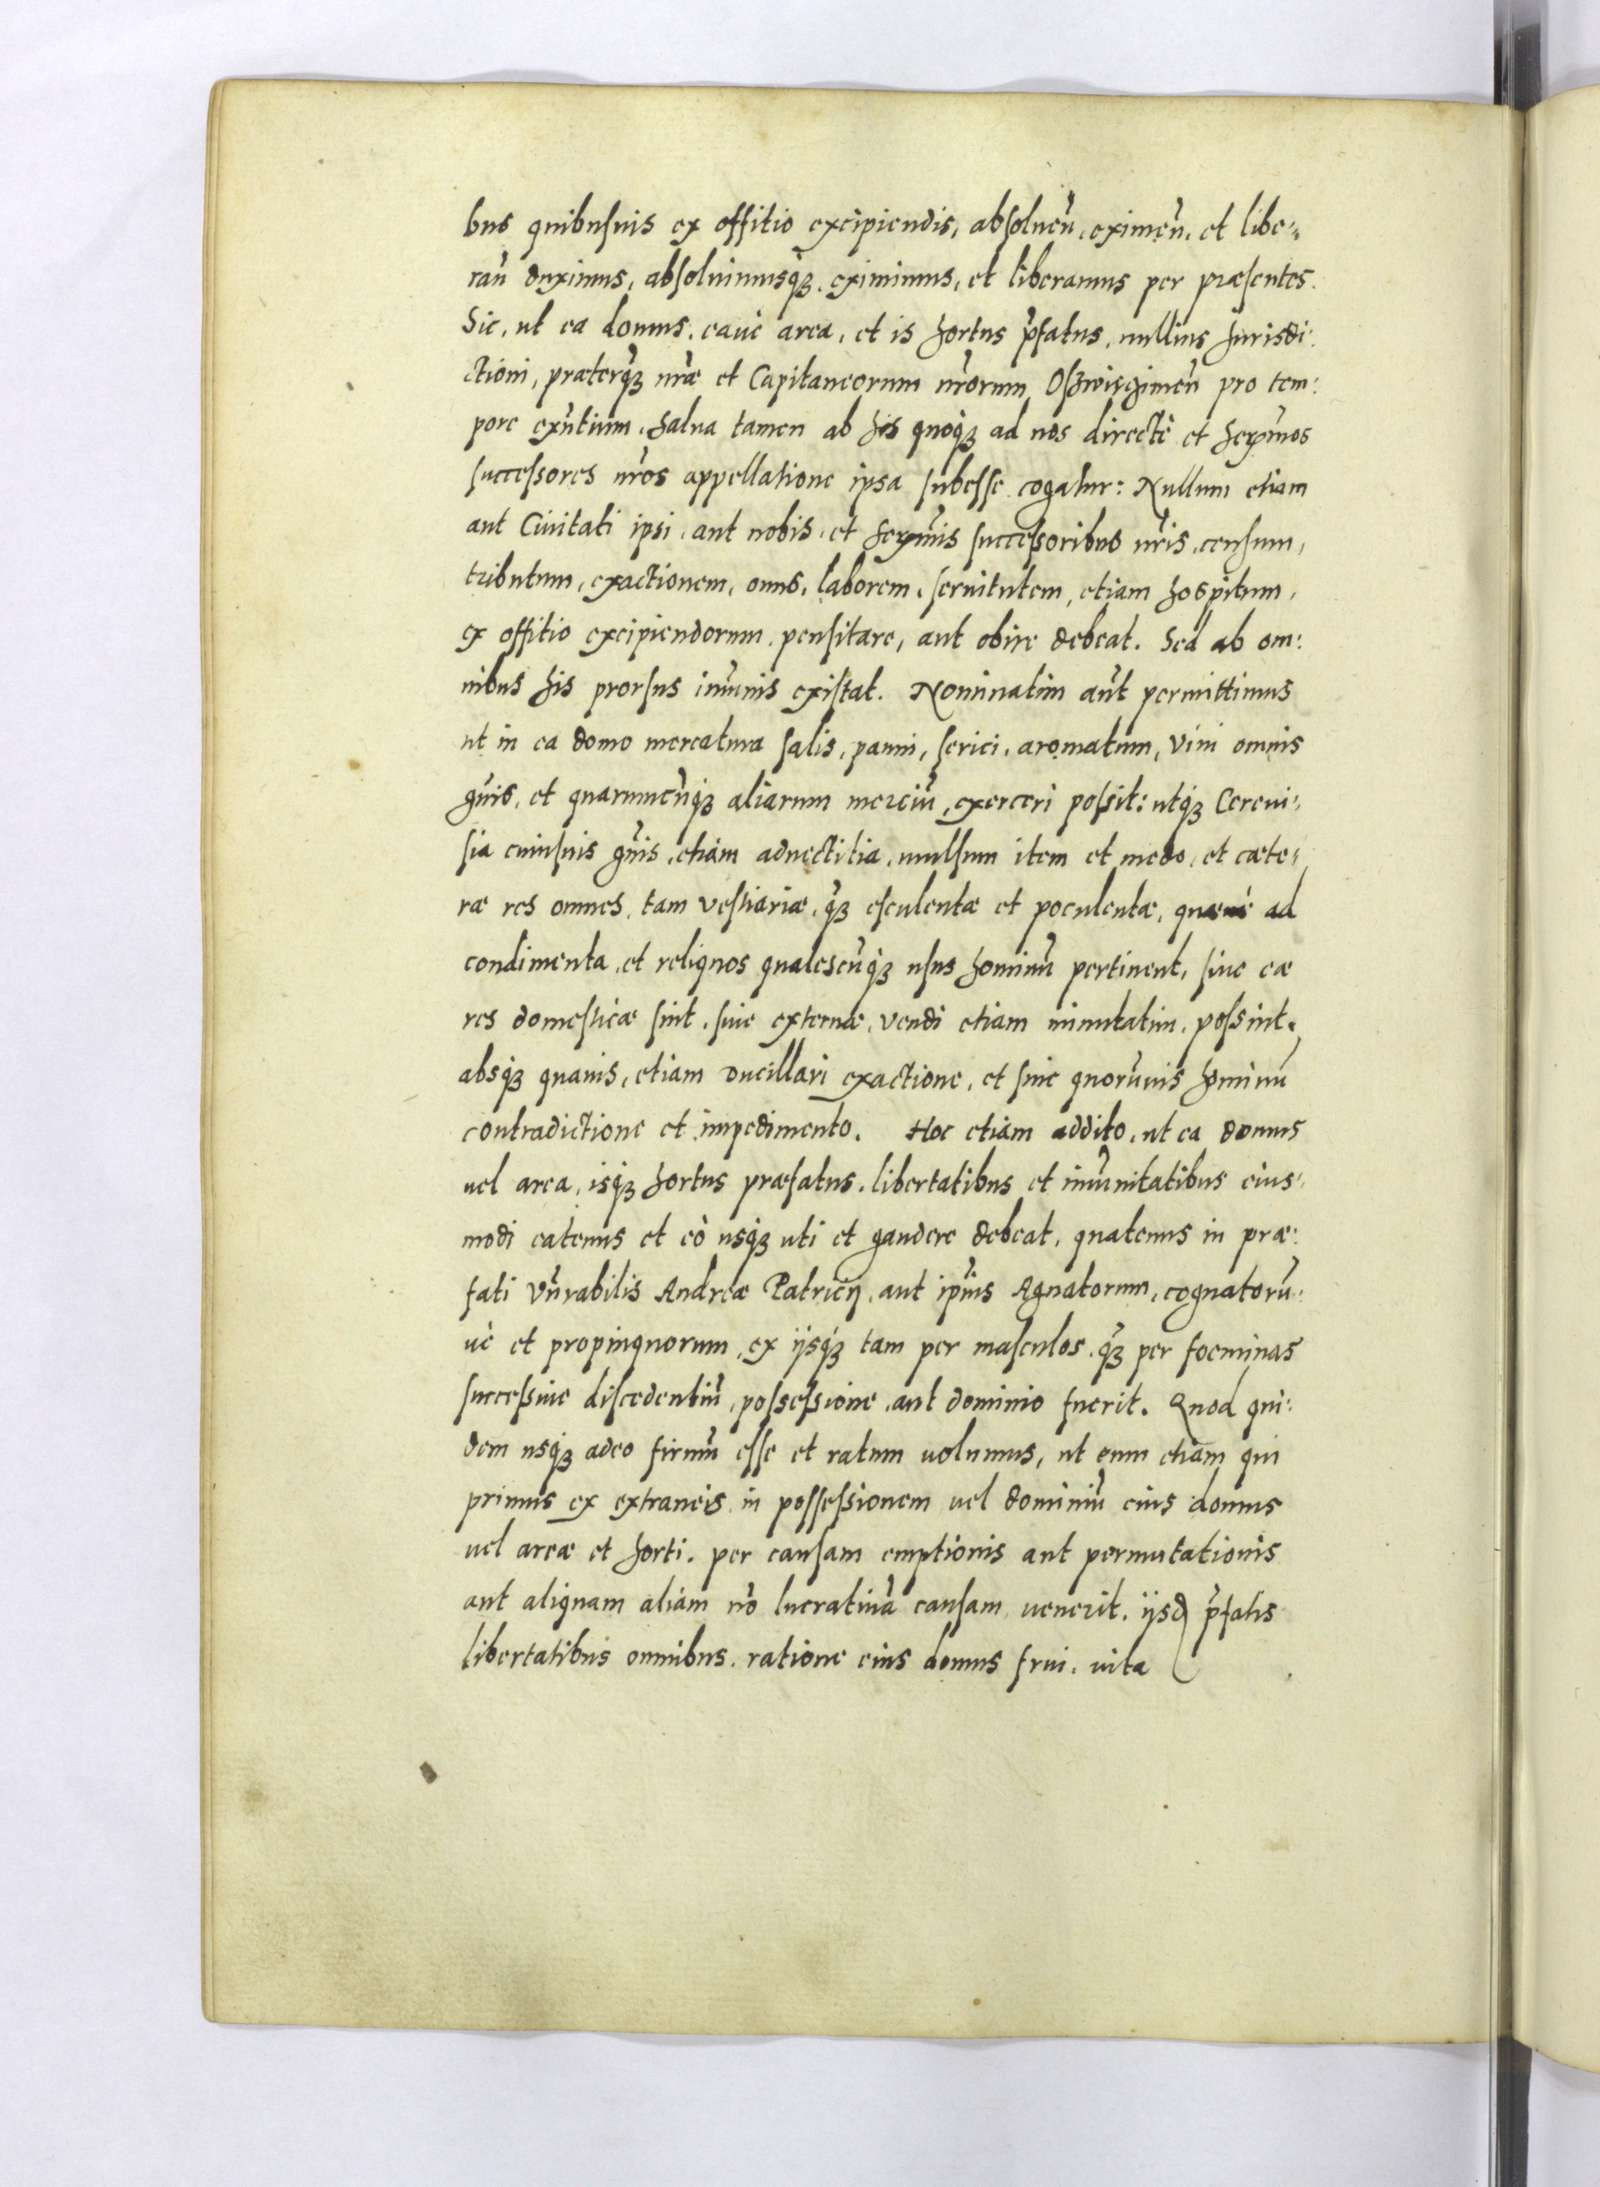 bus quibusuis ex offitio excipiendis, absoluen̄, eximen̄, et libe=
ran̄ duximus, absoluimusq́ꝫ, eximimus, et liberamus per præsentes.
Sic, ut ea domus, eauè area, et is hortus p̄fatus, nullius Jurisdi:
ctioni, præterq̃ꝫ nr̄æ et Capitaneorum nr̄orum Oßwięczimen̄ pro tem:
pore exn̄tium, salua tamen ab his quoq́ꝫ ad nos directè et Serm̄os
successores nr̄os appellatione ipsa subesse cogatur: Nullum etiam
aut Ciuitati ipsi, aut nobis, et Serm̄is successoribus nr̄is, censum,
tributum, exactionem, onus, laborem, seruitutem, etiam hospitum,
ex offitio excipiendorum, pensitare, aut obire debeat. Sed ab om:
nibus his prorsus im̄unis existat. Nominatim aūt permittimus
ut in ea domo mercatura salis, panni, serici, aromatum, Vini omnis
gn̄is, et quarumcūq́ꝫ aliarum merciū, exerceri possit: utq́ꝫ Cereui=
sia cuiusuis gn̄is, etiam aduectitia, mulsum item et medo, et cæte=
ræ res omnes, tam vestiariæ, q̃ꝫ esculentæ et poculentæ, quæuè ad
condimenta, et reliquos qualescūq́ꝫ usus hominū pertinent, siue eæ
res domesticæ sint, siue externæ, vendi etiam minutatim, possint,
absq́ꝫ quauis, etiam Ducillari exactione, et sine quorūuis hominū
contradictione et impedimento. Hoc etiam addito, ut ea domus
uel area, isq́ꝫ hortus præfatus, libertatibus et im̄unitatibus eius=
modi eatenus et eò usq́ꝫ uti et gaudere debeat, quatenus in præ:
fati Vn̄rabilis Andreæ Patricij, aut ip̄ius Agnatorum, cognatorū:
uè et propinquorum, ex ijsq́ꝫ tam per masculos, q̃ꝫ per foeminas
successiue discedentiū, possessione, aut dominio fuerit. Quod qui:
dem usq́ꝫ adeo firmū esse et ratum uolumus, ut eum etiam qui
primus ex extraneis in possessionem uel dominiū eius domus
uel areæ et horti, per causam emptionis aut permutationis
aut aliquam aliam nō lucratiuā causam, uenerit, ijsd p̄fatis
libertatibus omnibus, ratione eius domus frui, uita